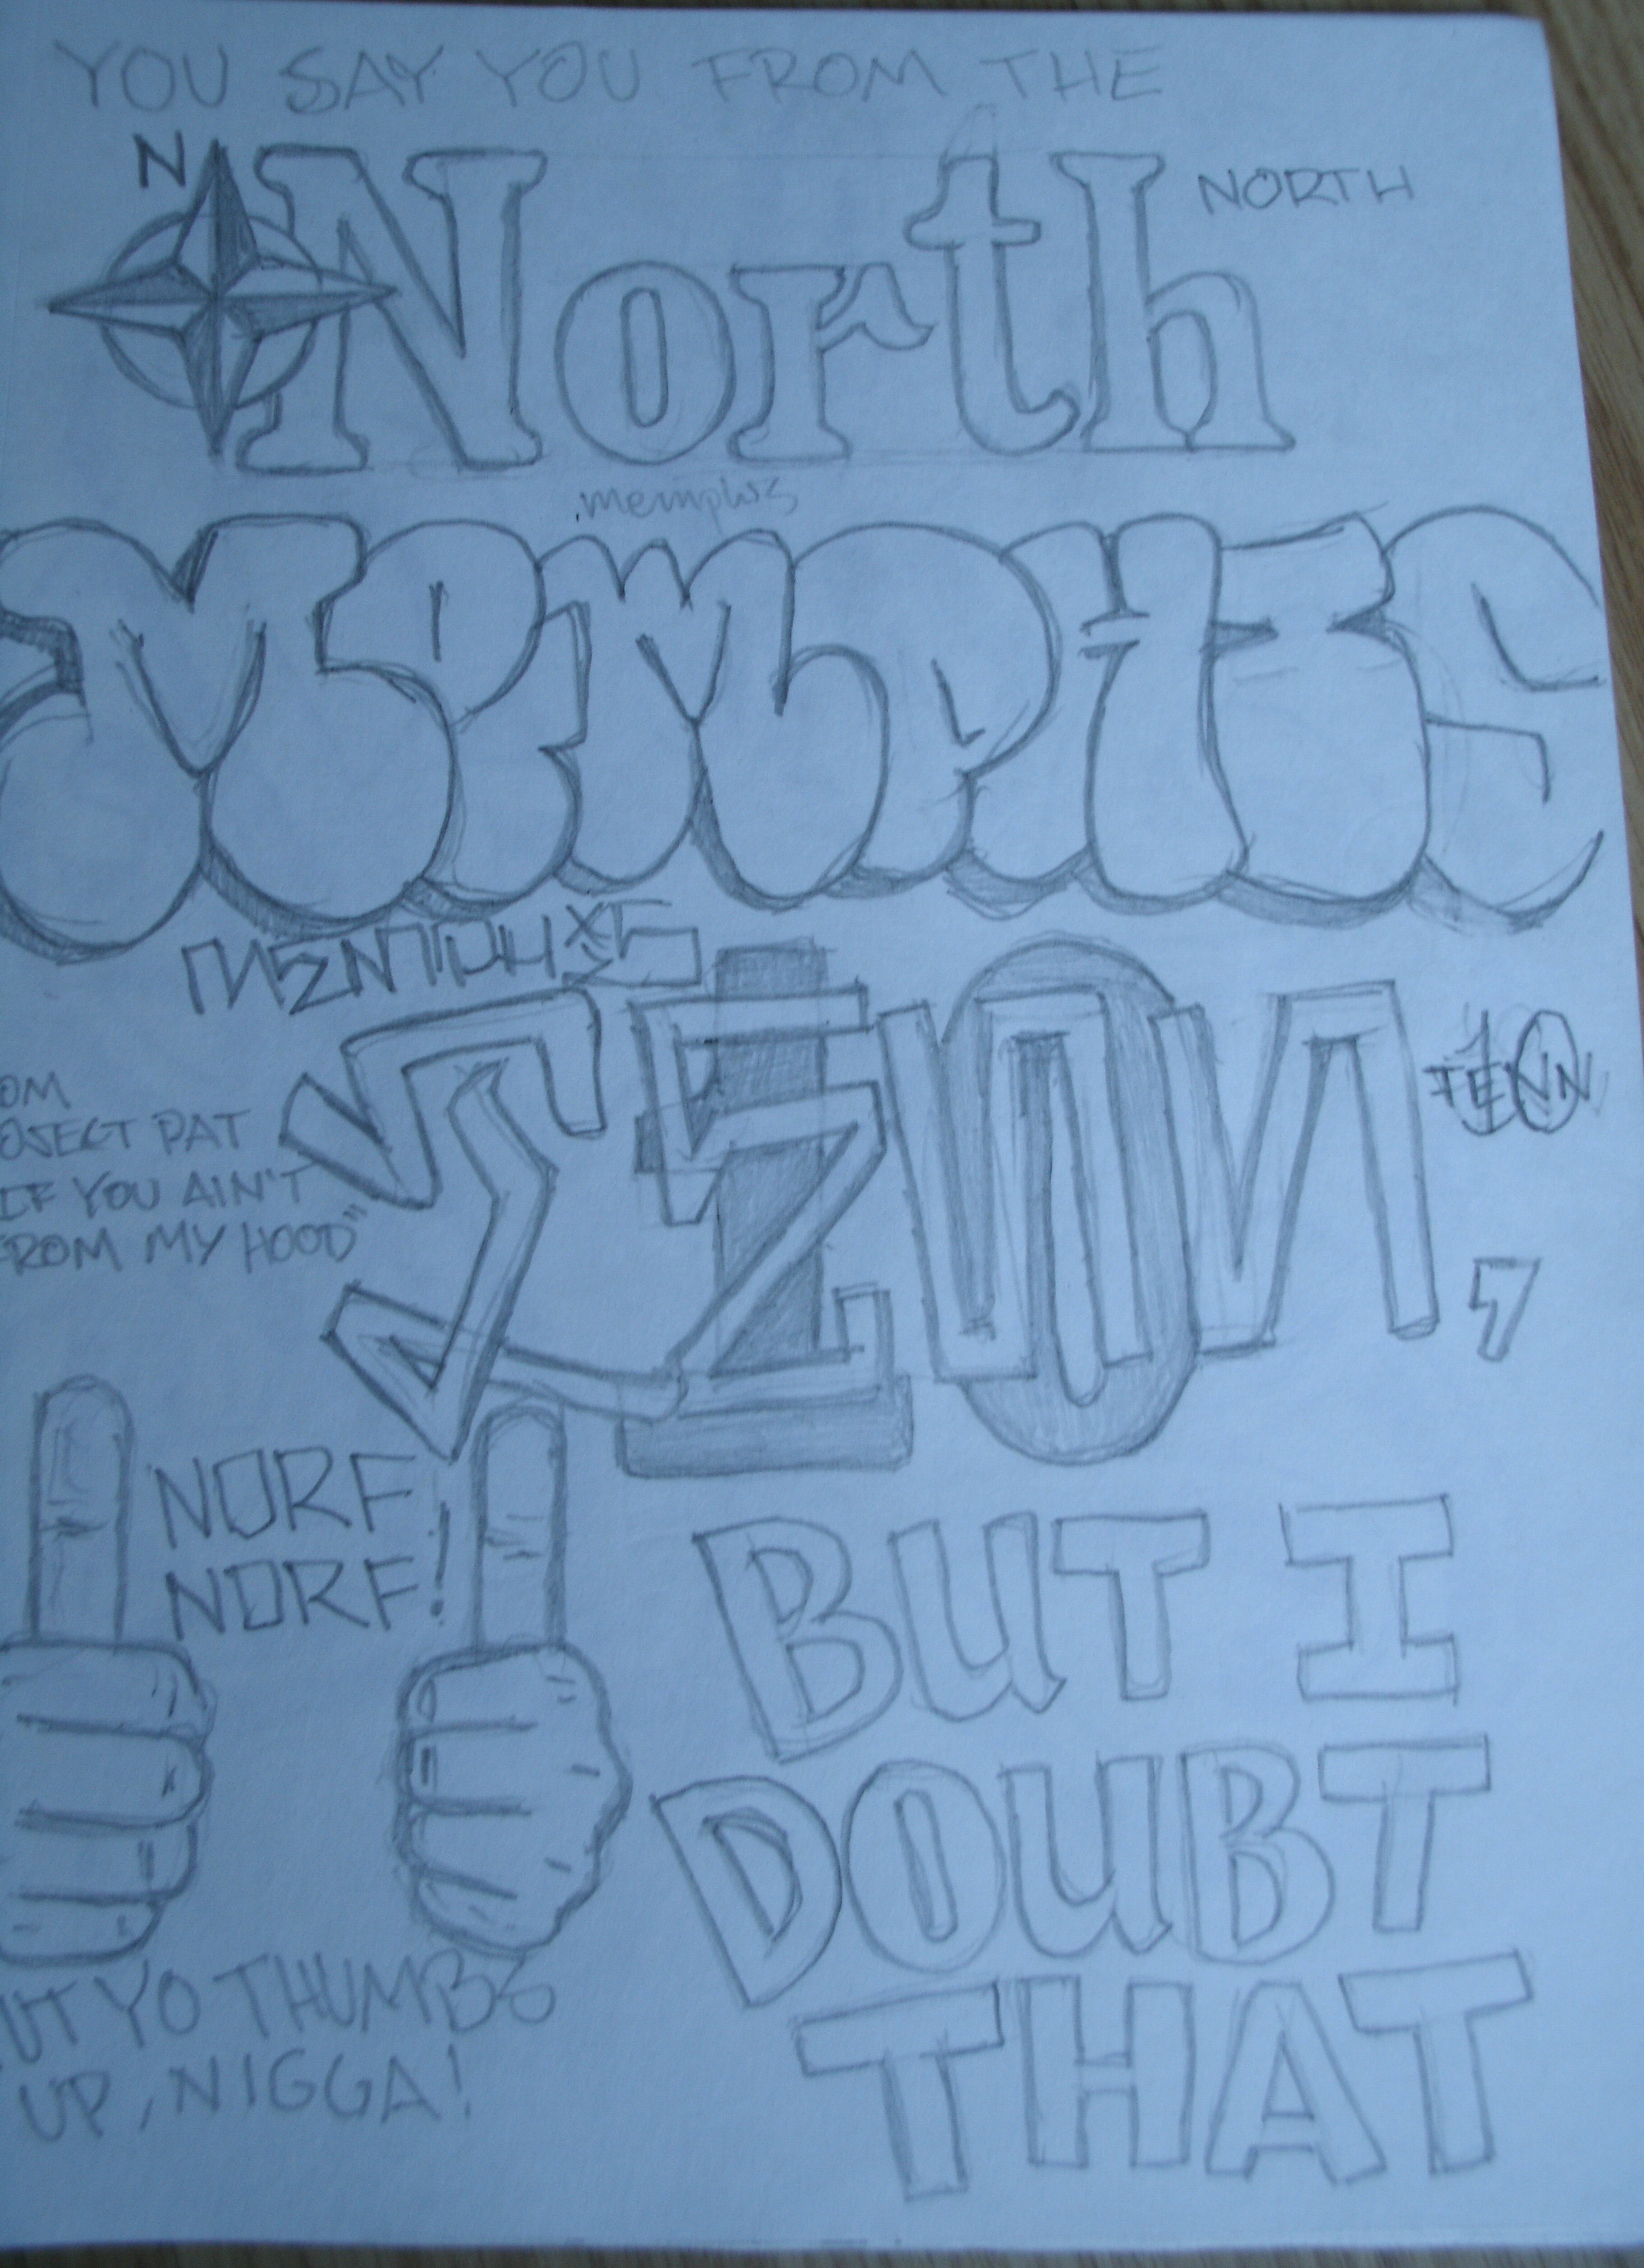 YOU SAY YOU FROM THE
N
North NORTH
memphis
MEMPHIS
MEMPHIS
TENN 10
TENN
,
OM
OJECT PAT
IF YOU AIN'T
FROM MY HOOD"
NORF
NORF!
BUT I
DOUBT
THAT
UT YO THUMBS
UP, NIGGA!